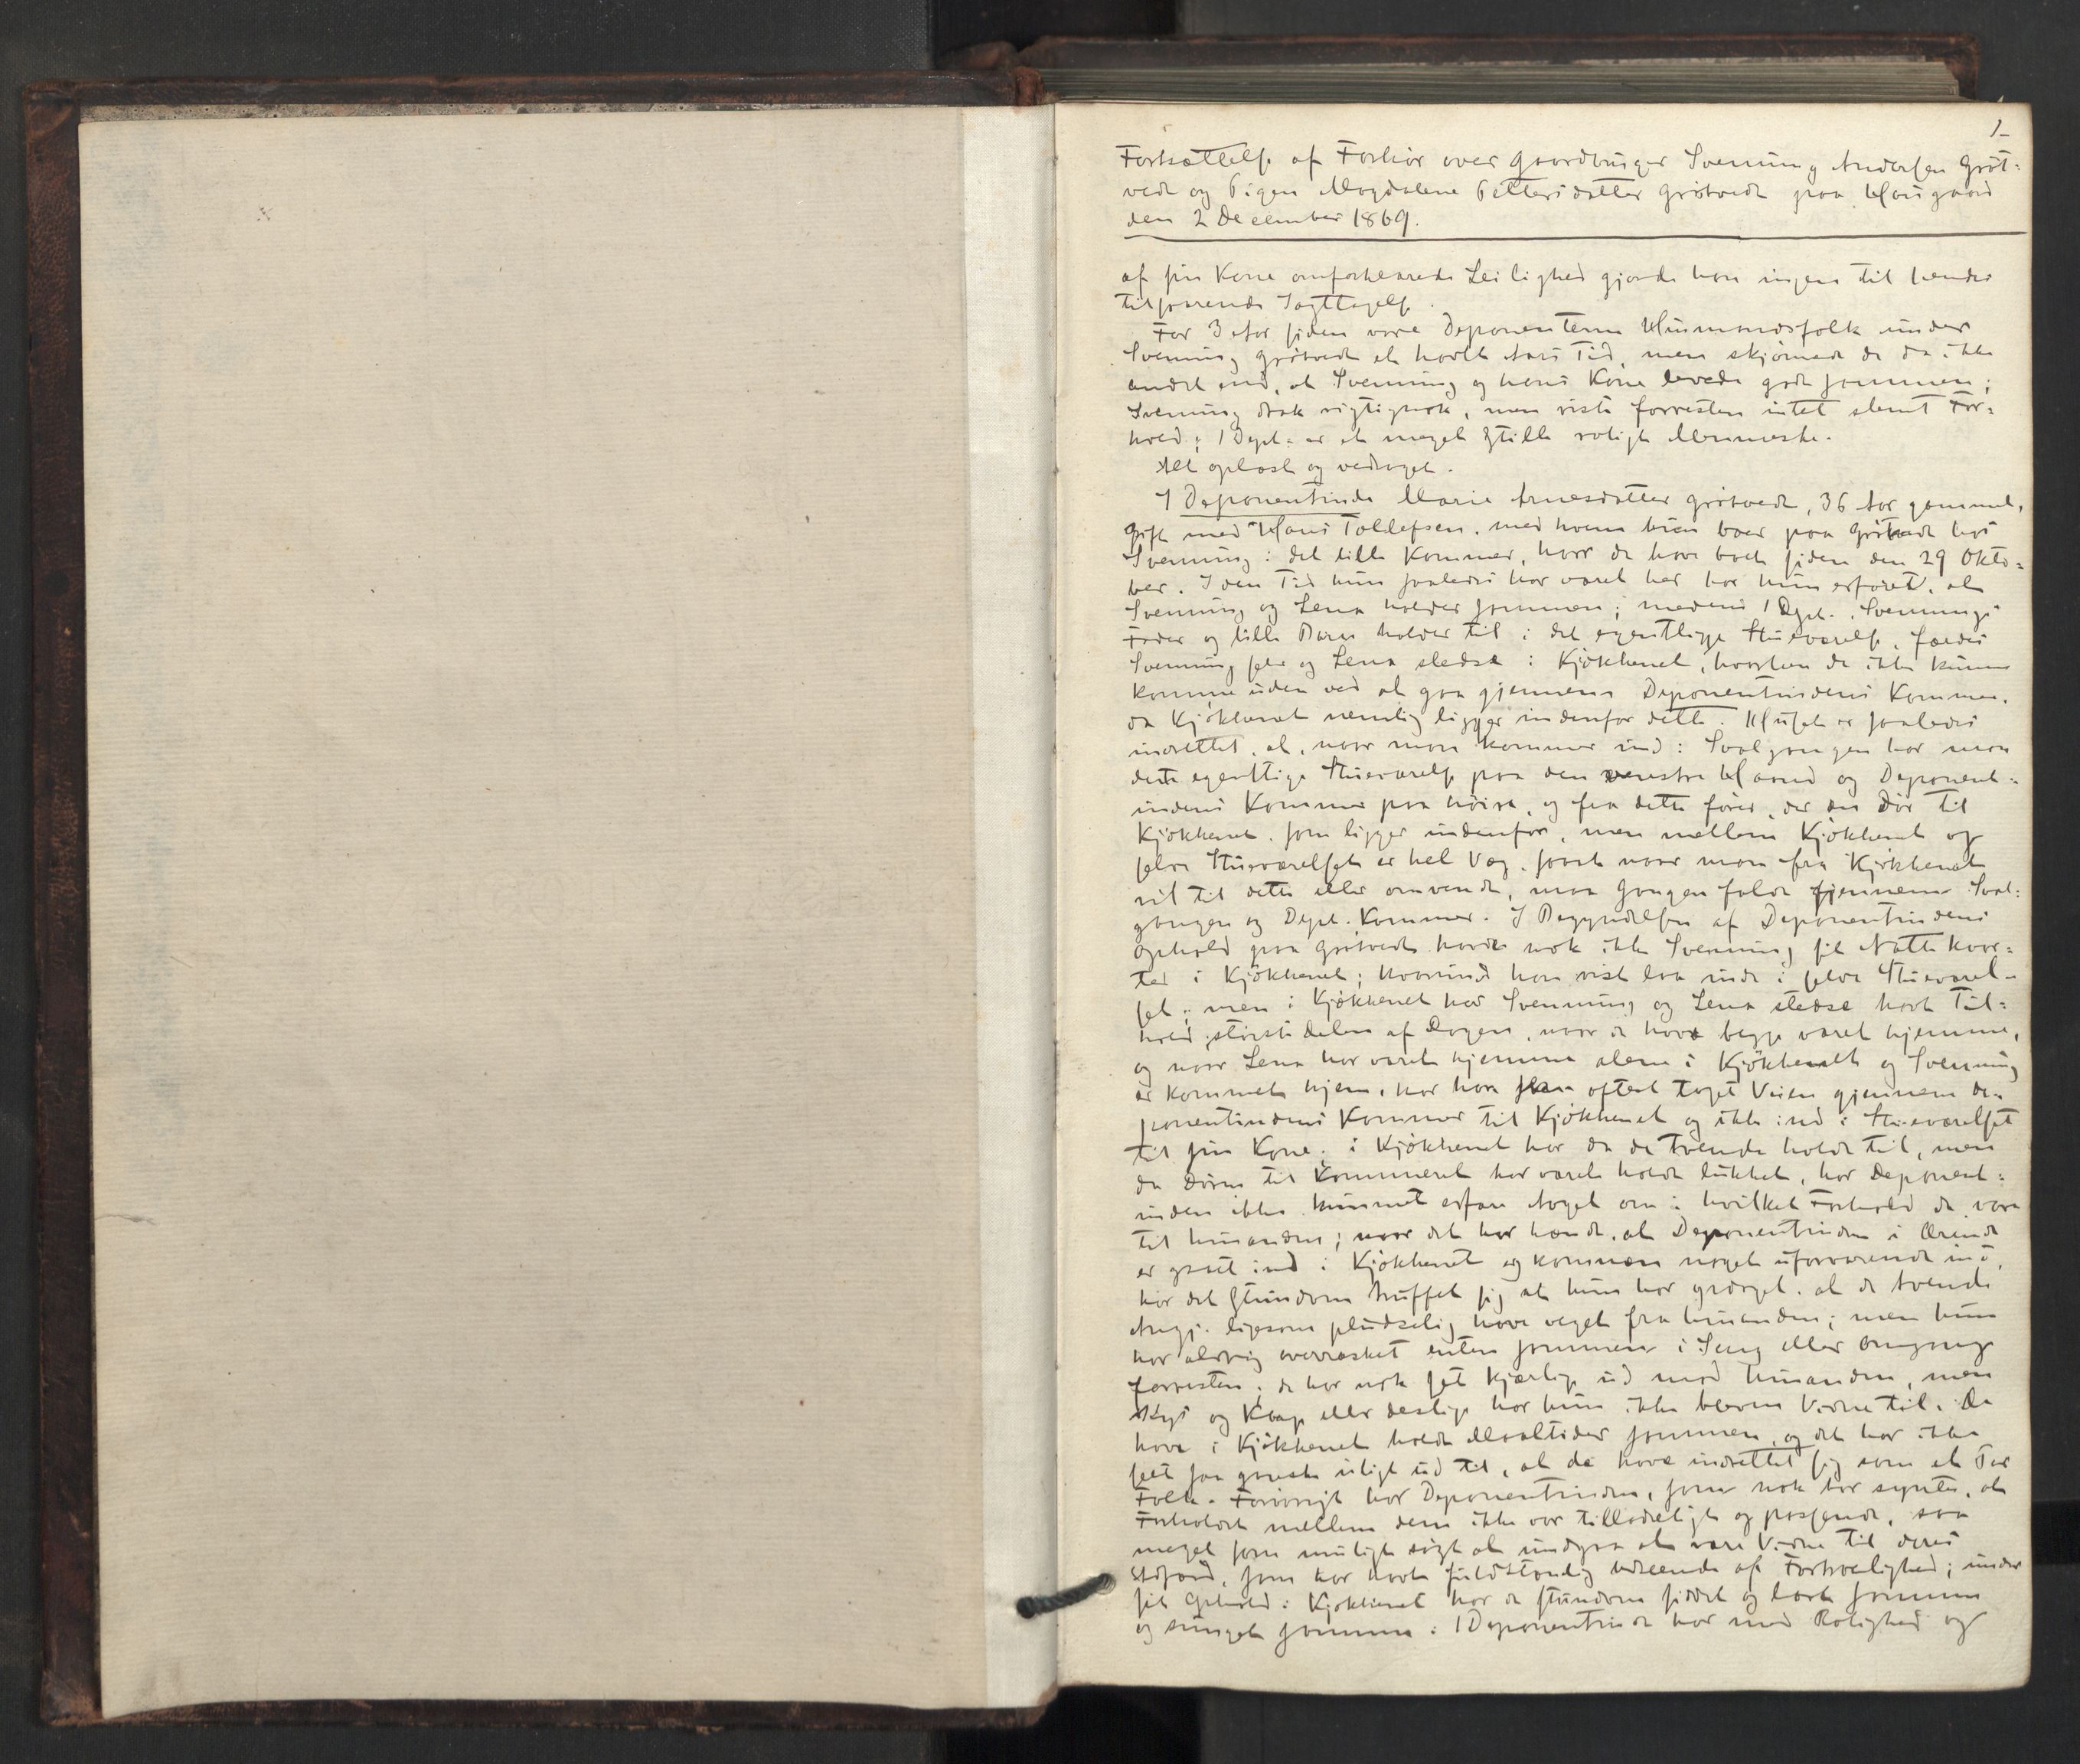 1
Fortsættelse af Forhør over Gaardbruger Svenning Andersen Grøt=
vedt og Pigen Magdalene Pettersdatter Grøtvedt paa Haugaard
den 2 December 1869.
af sin Kone omforklarede Leilighed gjorde han ingen til hendes
tilsvarende Iagttagelse.
For 3 Aar siden vare Deponenterne Huusmandsfolk under
Svenning Grøtvedt et halvt Aars Tid, men skjønnede de da ikke
andet end, at Svenning og hans Kone levede godt sammen;
Svenning drak rigtignok, men viste forresten intet slemt For=
hold; 1 Dept. er et meget stille roligt Menneske.
Alt oplæst og vedtaget.
1 Deponentinde Marie Arnesdatter Grøtvedt, 36 Aar gammel,
gift med Hans Tollefsen, med hvem hun boer paa Grøtvedt hos
Svenning i det lille Kammer, hvor de have boet siden den 29 Okto=
ber. I den Tid hun saaledes har været her har hun erfaret, at
Svenning og Lena holder sammen; medens 1 Dept., Svennings
Fader og lille Barn holder til i det egentlige Stueværelse, færdes
Svenning selv og Lena stedse i Kjøkkenet, hvorhen de ikke kunne
komme uden ved at gaa gjennem Deponentindens Kammer,
da Kjøkkenet nemlig ligger indenfor dette. Huset er saaledes
indrettet, at, naar man kommer ind i Svalgangen har man
dette egentlige Stueværelse paa den venstre Haand og Deponent=
indens Kammer paa høire, og fra dette fører der en Dør til
Kjøkkenet, som ligger indenfor, men mellem Kjøkkenet og
selve Stueværelset er hel Væg, saa at naar man fra Kjøkkenet
vil til dette eller omvendt, maa Gangen falde gjennem Sval=
gangen og Dept. Kammer. I Begyndelsen af Deponentindens
Ophold paa Grøtvedt havde nok ikke Svenning sit Nattekvar=
ter i Kjøkkenet; hvorimod han vist laa inde i selve Stueværel=
set; men i Kjøkkenet har Svenning og Lena stedse havt Til=
hold største delen af Dagen, naar de have begge været hjemme,
og naar Lena har været hjemme alene i Kjøkkenet og Svenning
er kommet hjem, har han oftest taget Veien gjennem De=
ponentindens Kammer til Kjøkkenet og ikke ind i Stueværelset
til sin Kone; i Kjøkkenet har da de tvende holdt til, men
da Døren til Kammeret har været holdt lukket, har Deponent=
inden ikke kunnet erfare Noget om i hvilket Forhold de vare
til hinanden; naar det har hændt, at Deponentinden i Ærinde
er gaaet ind i Kjøkkenet og kommen noget uforvarende ind,
har det stundom truffet sig at hun har mærket, at de tvende
Angj. ligesom pludselig have veget fra hinanden; men hun
har aldrig overrasket enten sammen i Seng eller Omgang
forresten; de har nok set kjærlige ud mod hinanden, men
Kys og Klap eller deslige har hun ikke bleven Vidne til. De
have i Kjøkkenet holdt Maaltider sammen, og det har ikke
seet saa ganske uligt ud til, at de have indrettet sig som et Par
Folk. Forøvrigt har Deponentinden, som nok har syntes, at
Forholdet mellem dem ikke var tilladeligt og passende, saa
meget som muligt søgt at undgaa at være Vidne til deres
Adfærd, som har havt fuldstændig Udseende af Fortrolighed; under
sit Ophold i Kjøkkenet har de stundom siddet og læst sammen
og sunget sammen. 1 Deponentinde har med Rolighed og